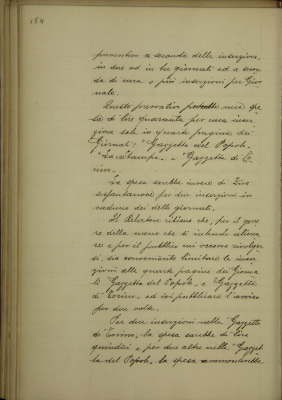 154
preventivo a seconda delle inserzioni,
in due od in tre giornali ed a secon-
da di una o più inserzioni per Gior-
nale.
Questo preventivo una spe-
sa di lire quaranta per una inser-
zione sola in quarta pagina dei
Giornali: "Gazzetta del Popolo"
"La Stampa" e "Gazzetta di To-
rino".
La spesa sarebbe invece di Lire
per due inserzioni in
caduno dei detti giornali.
Il Relatore ritiene che, per il gene-
re della merce che si intende aliena-
re e per il pubblico cui occorre rivolger-
si, sia conveniente limitare le inser-
zioni alla quarta pagina dei Giorna-
li "Gazzetta del Popolo" e "Gazzetta
di Torino", ed ivi pubblicare l'avviso
per due volte.
Per due inserzioni nella "Gazzetta
di Torino" la spesa sarebbe di lire
quindici e per due altre nella "Gazzet-
ta del Popolo" la spesa ammonterebbe